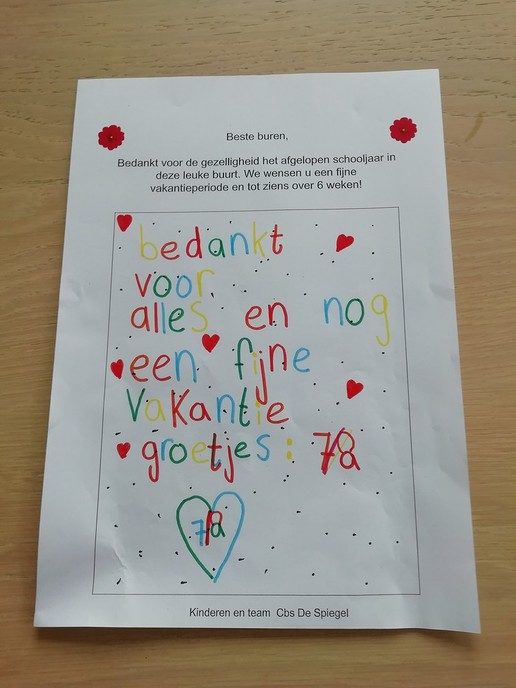 Beste buren,
Bedankt voor de gezelligheid het afgelopen schooljaar in
deze leuke buurt. We wensen u een fijne
vakantieperiode en tot ziens over 6 weken!
bedankt
voor
alles en nog
een fijne
Vakantie
groetjes: 7/8
7/8
Kinderen en team Cbs De Spiegel